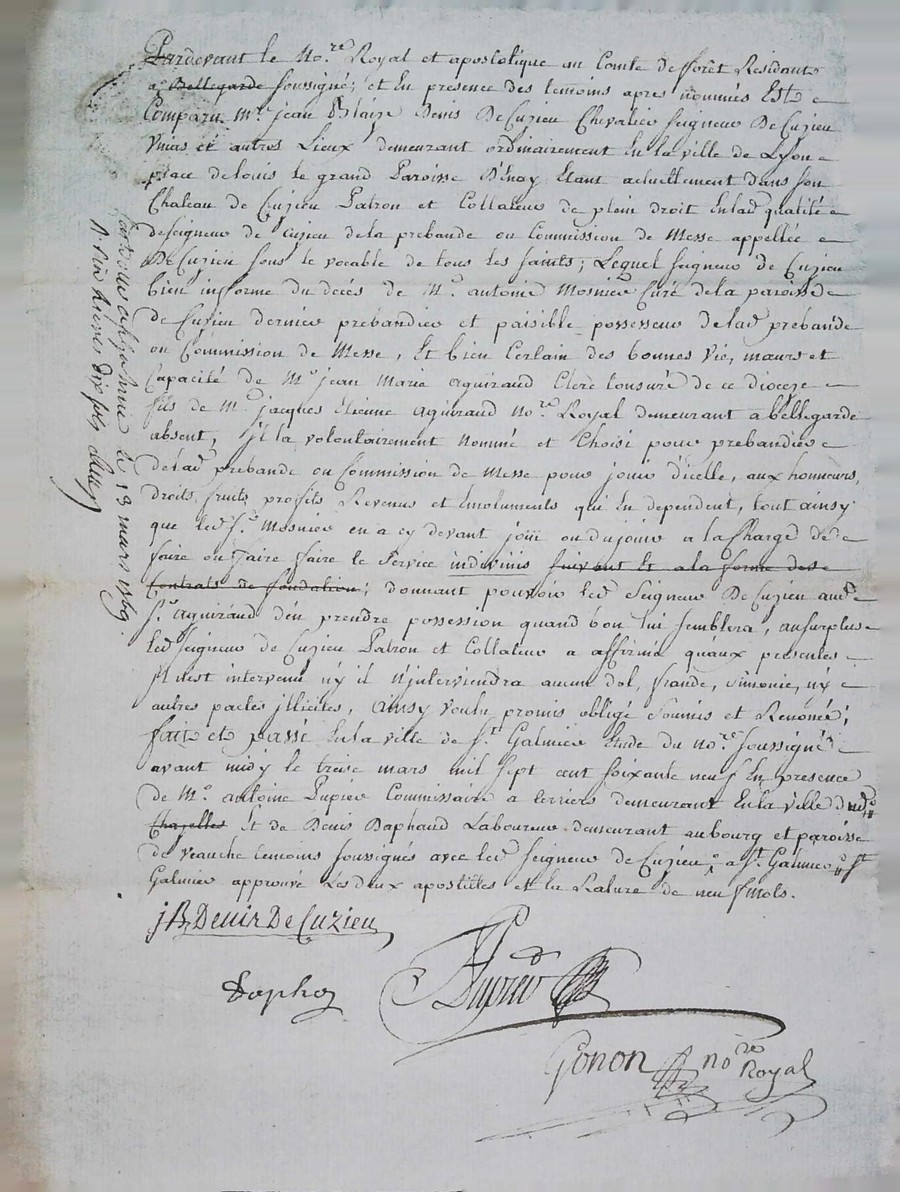 Pardevant le No.re Royal et apostolique au Comté de fforêt Residant
a Bellegarde soussigné; et En presence des temoins apres nommés Est
Comparu mr. jean Blaize Denis De Cuzieu Chevalier seigneur De Cuzieu
Unias et autres Lieux demeurant ordinairement En la ville de Lyon
place de louis le grand Paroisse D'Enay Etant actuellement dans son
Chateau de Cuzieu Patron et Collateur de plein droit En lad qualité
de seigneur de Cuzieu de la prebande ou Commission de Messe appellée
De Cuzieu sous le vocable de tous les saints; Lequel seigneur de Cuzieu
bien informé du decés de Mr. antoine Mosnier Curé de la paroisse
de Cuzieu dernier prebandier et paisible possesseur de lad prebande
ou Commission de Messe, Et bien Certain des bonnes vie, mœurs et
Capacité de Mr jean Marie aguiraud Clerc tonsuré de ce dioceze
fils de Mr. jacques Etienne aguiraud no.re Royal demeurant a bellegarde
absent, jl la volontairement nommé et Choisi pour prebandier
de lad prebande ou Commission de Messe pour jouir d'icelle, aux honneurs,
droits, fruits, profits Revenus et Emoluments qui En dependent, tout ainsy
que led sr. Mosnier en a cy devant joüi ou du jouir a la Charge de
faire ou faire faire le Service suivant Et a la forme des
Contrats de fondation; donnant pouvoir led Seigneur De Cuzieu aud
sr. aguiraud d'en prendre possession quand bon lui semblera, au surplus
led seigneur de Cuzieu Patron et Collateur a affirmé qu'aux presentes
jl n'est intervenu n'y il n'jnterviendra aucun dol, fraude, simonie, n'y
autres pactes jllicites, ainsy voulu promis obligé soumis et Renoncé;
fait et passé En la ville de st. Galmier Etude du no.re soussigné
avant midy le treise mars mil sept cent soixante neuf En presence
de Mr. antoine Dupier Commissaire a terriers demeurant En la ville d
Chazelles Et de Denis Daphaud Laboureur demeurant au bourg et paroisse
de veauche temoins soussignés avec led seigneur de Cuzieu a st. Galmier st
Galmier approuvé Les deux apostilles et la Rature de neuf mots.
jB Denis De Cuzieu
Dupier
Gonon no.re Royal
le 18 mars 1769.